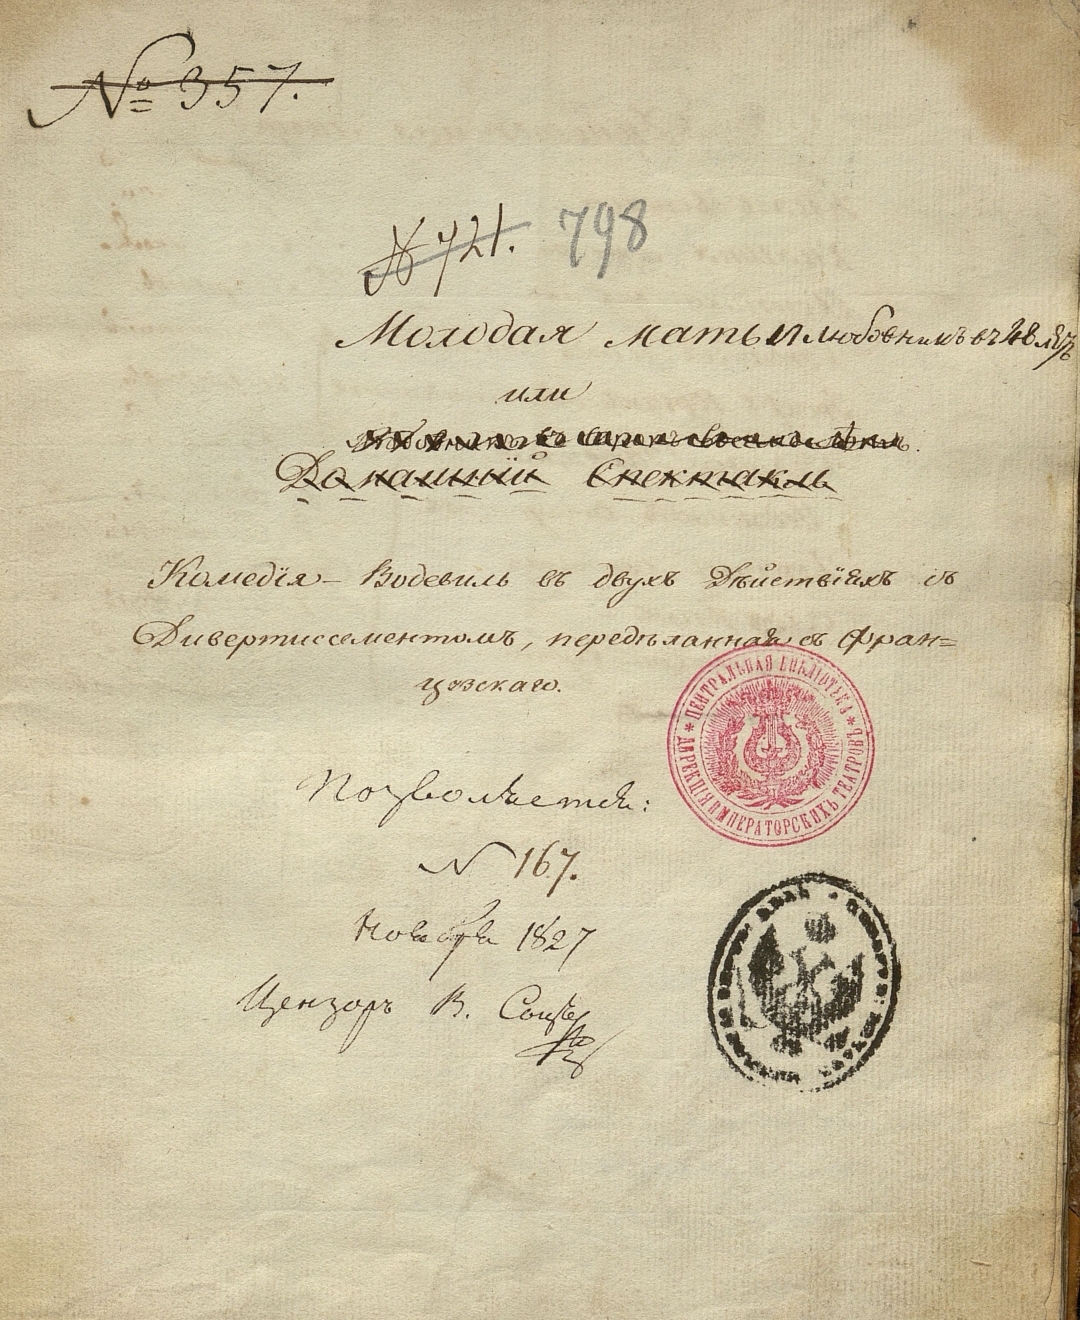 № 357.
№ 721. 798
Молодая мать и любовникъ въ 48 лѣтъ
или
Домашній Спектакль
Комедія-Водевиль въ двухъ Дѣйствіяхъ съ
Дивертиссементомъ, передѣланная съ Фран=
цузскаго.
ЦЕНТРАЛЬНАЯ БИБЛІОТЕКА * ДИРЕКЦІЯ ИМПЕРАТОРСКИХЪ ТЕАТРОВЪ *
Позволяется:
N 167.
Ноября 1827
Цензоръ В.